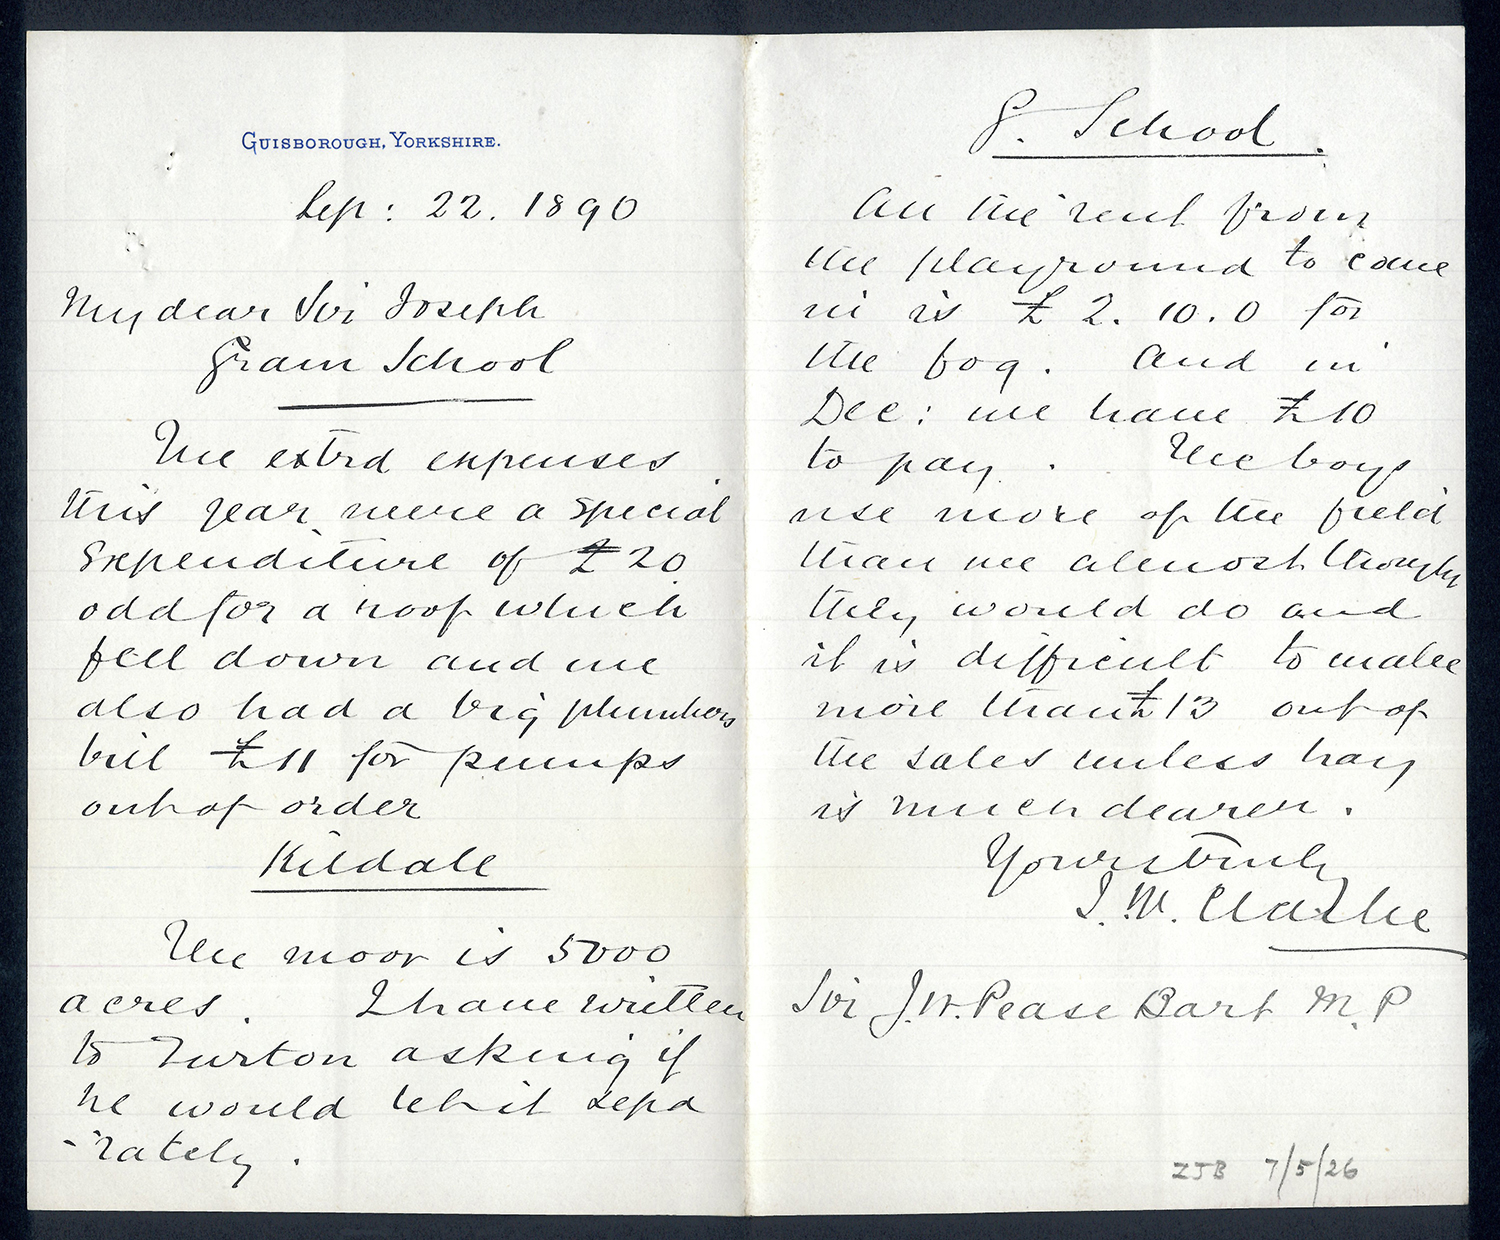 GUISBOROUGH, YORKSHIRE.
Sep: 22. 1890
My dear Sir Joseph
Gram School
The extra expenses
this year were a special
Expenditure of £20
odd for a roof which
fell down and we
also had a big plumbers
bill £11 for pumps
out of order
Kildale
The moor is 5000
acres. I have written
to Turton asking if
he would let it sepa
-rately.
G. School.
All the rent from
the playground to come
in is £2. 10. 0 for
the fog. And in
Dec: we have £10
to pay. The boys
use more of the field
than we almost thought
they would do and
it is difficult to make
more than £13 out of
the sales unless hay
is much dearer.
Yours truly
J. W. Clarke
Sir J. W. Pease Bart M.P
ZJB 7/5/26